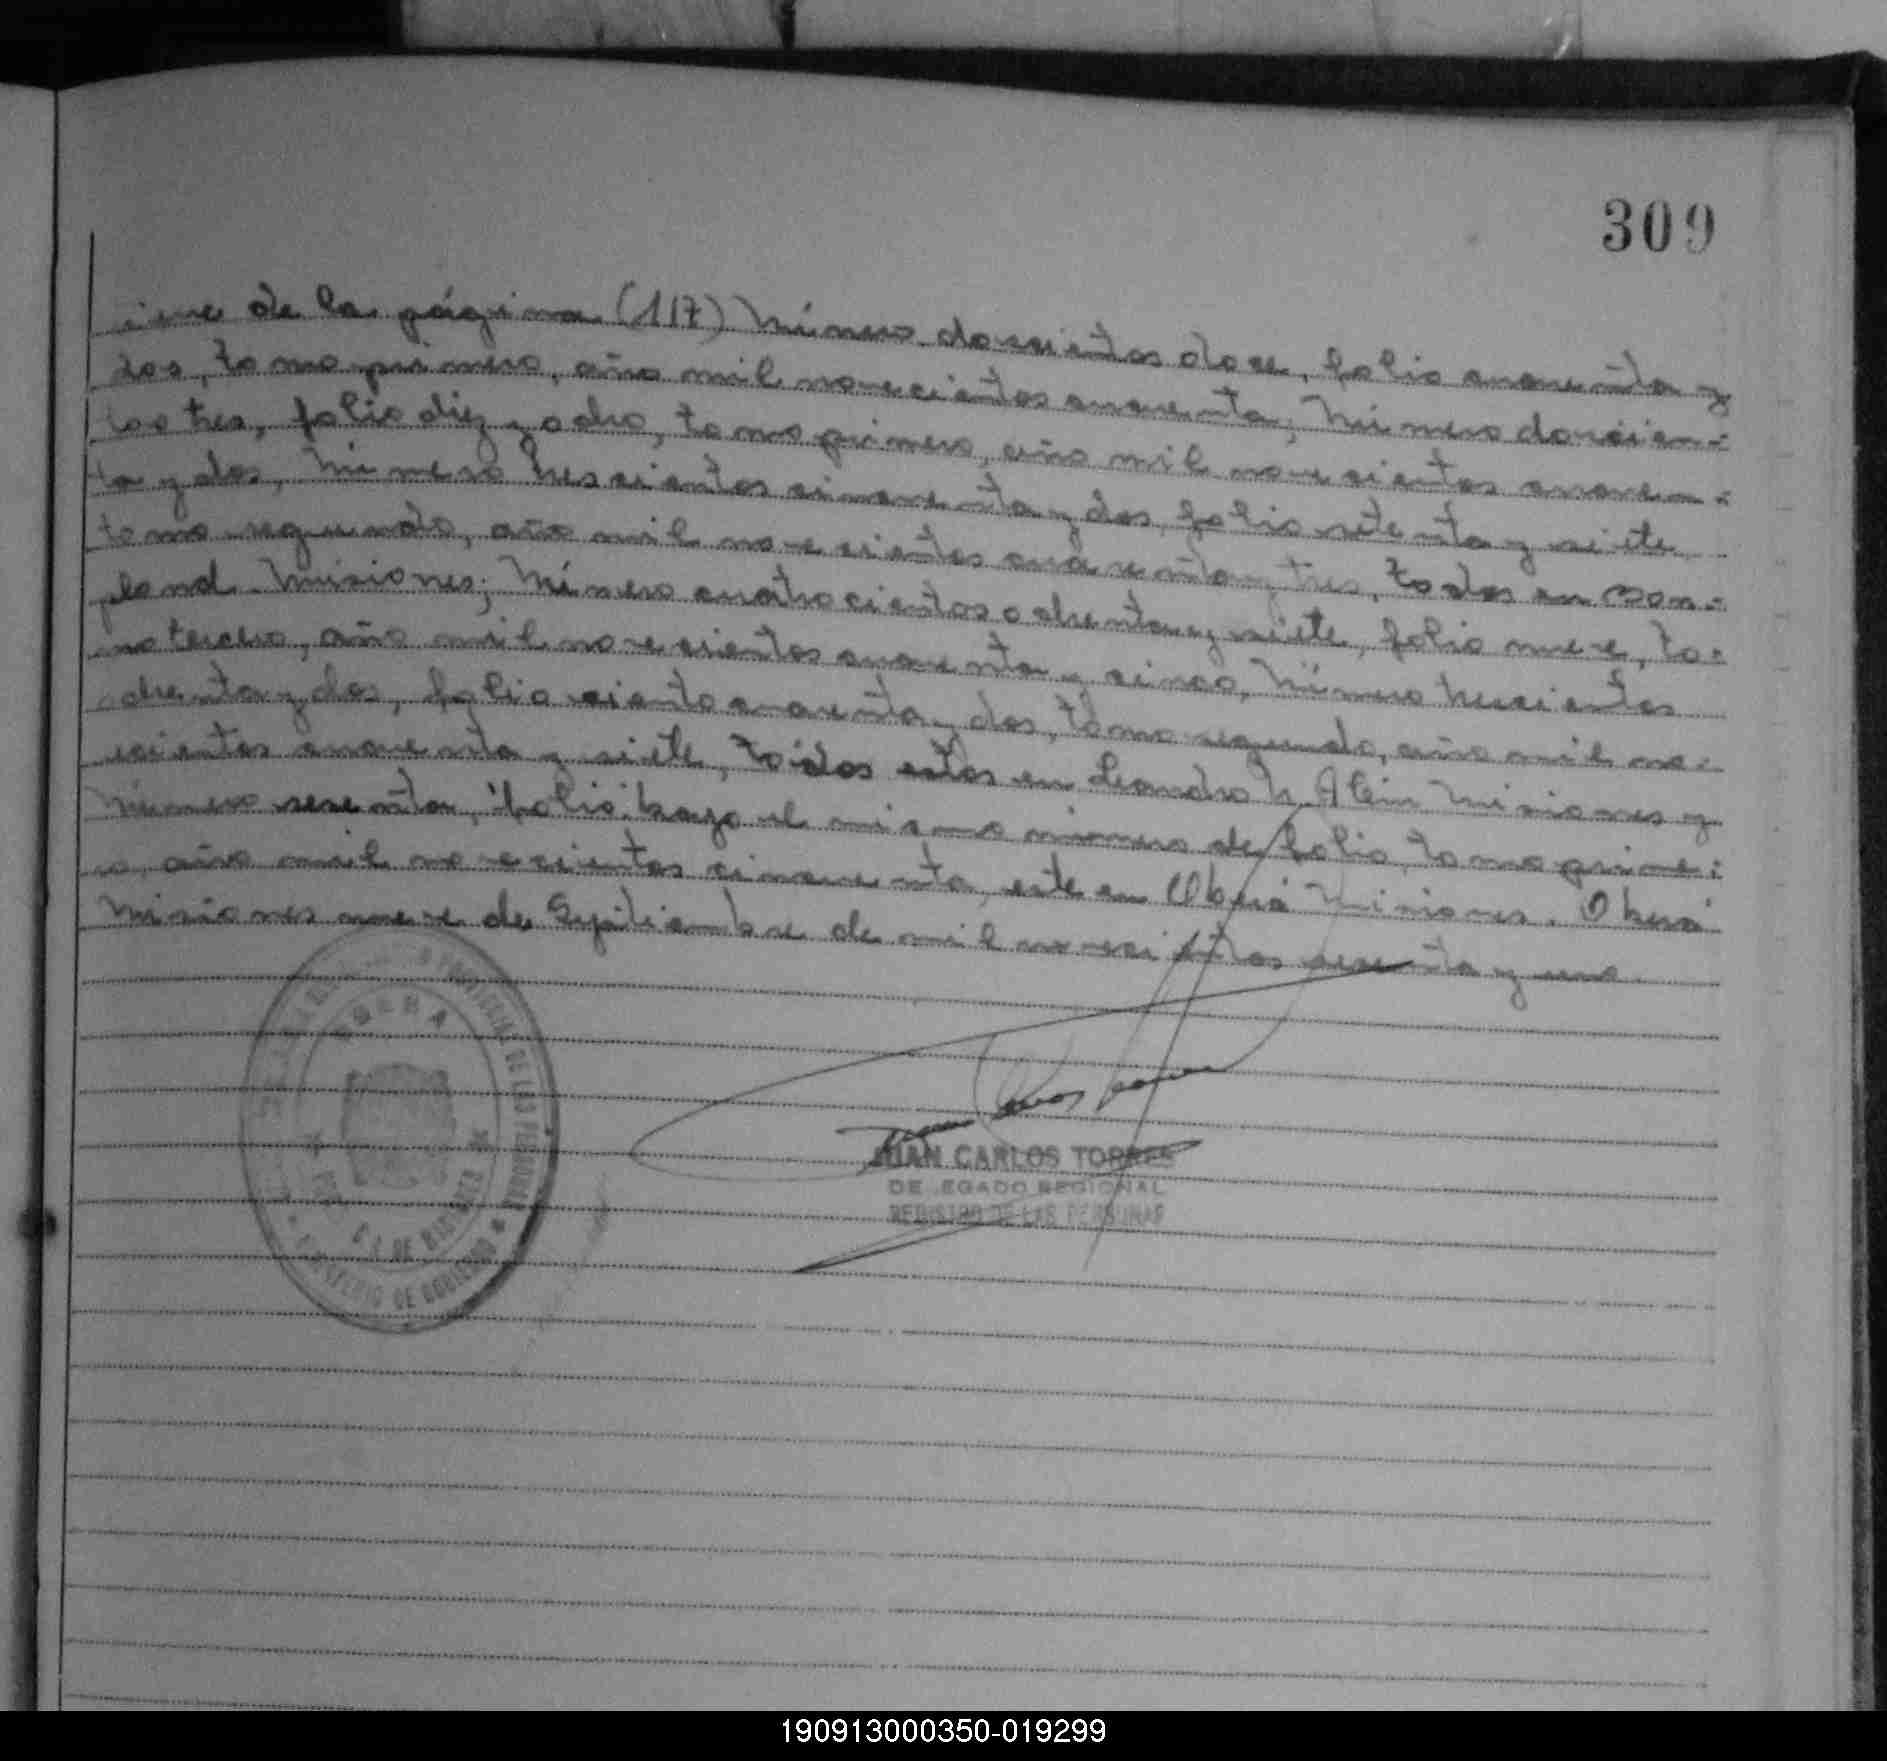 309
iene de la página (117) Número doscientos doce, folio cuarenta y
dos, tomo primero, año mil novecientos cuarenta; Número doscien-
tos tres, folio diez y ocho, tomo primero, año mil novecientos cuaren-
ta y dos, Número trescientos cincuenta y dos, folio setenta y siete
tomo segundo, año mil novecientos cuarenta y tres, todos en Bon-
pland - Misiones; Número cuatrocientos ochenta y siete, folio nueve, to-
mo tercero, año mil novecientos cuarenta y cinco, Número trescientos
ochenta y dos, folio ciento cuarenta y dos, tomo segundo, año mil no-
vecientos cuarenta y siete, todos estos en Leandro N. Alem Misiones y
Número sesenta, folio bajo el mismo número de folio, tomo prime-
ro, año mil novecientos cincuenta, este en Oberá Misiones. Oberá
Misiones nueve de Septiembre de mil novecientos sesenta y uno.
PROVINCIAL DE LAS PERSONAS
OBERA
MINISTERIO DE GOBIERNO
PCIA. DE MISIONES
JUAN CARLOS TORRES
DELEGADO REGIONAL
REGISTRO DE LAS PERSONAS
190913000350-019299